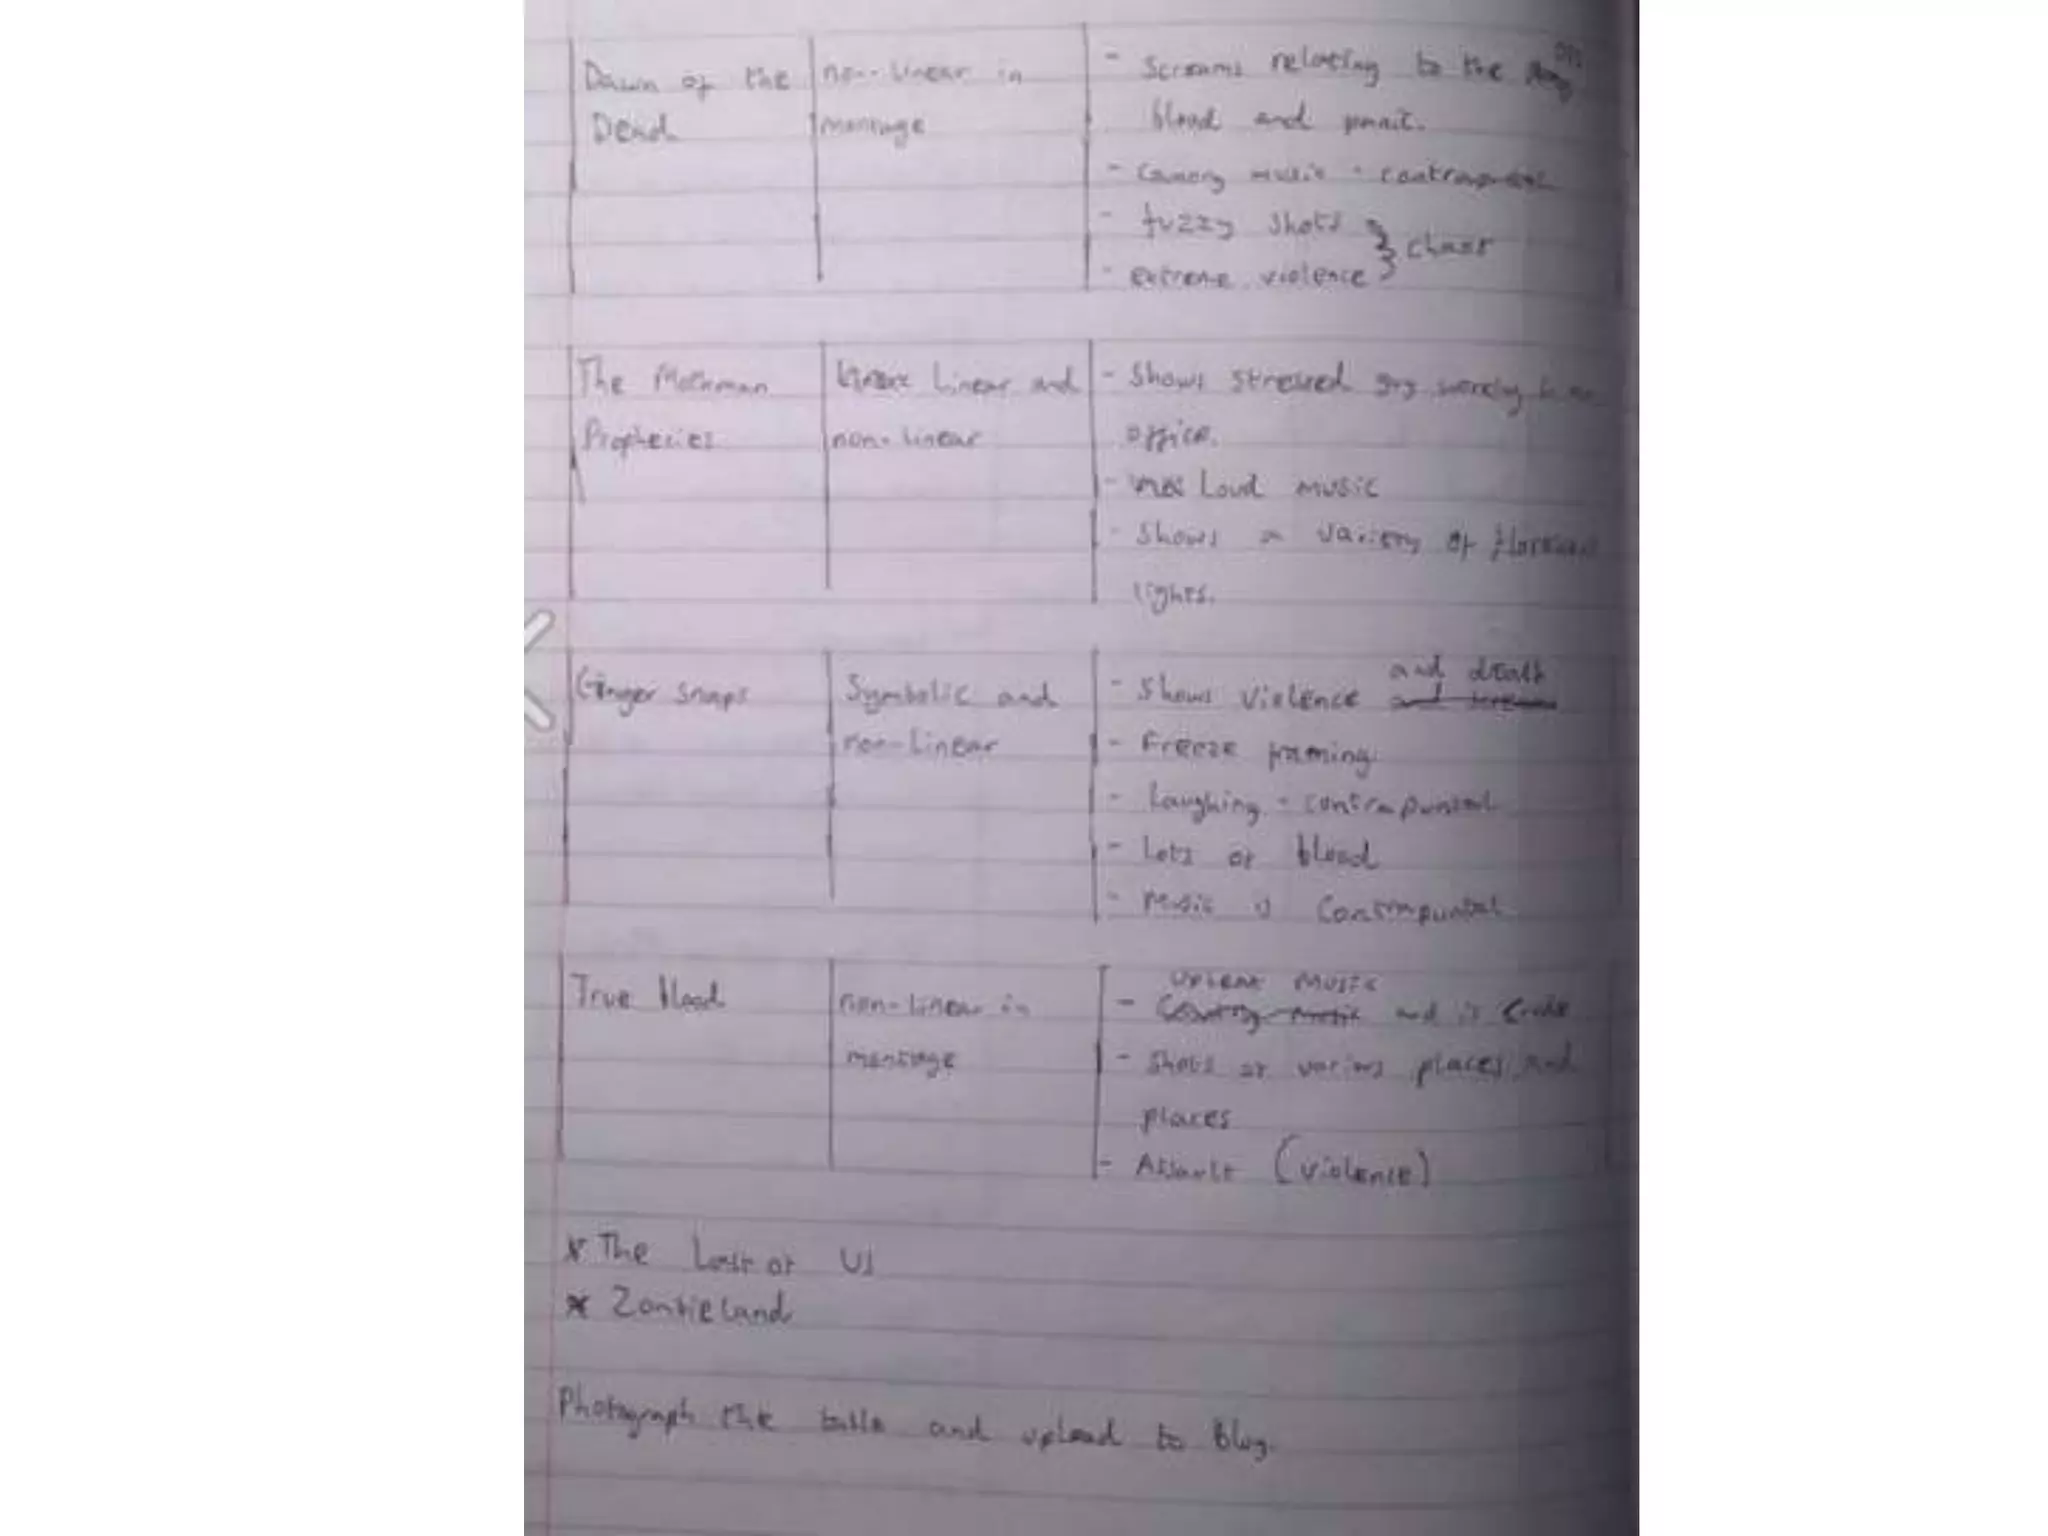 Dawn of the
Dead
non-linear in
montage
- Screams relating to the
blood and panic.
- music - contrapuntal
- fuzzy shots
- extreme violence
The Mothman
Prophecies
Linear and
non-linear
- Shows stressed guy
office.
- Loud music
- Shows a variety of
lights.
Ginger Snaps
Symbolic and
non-linear
and death
- Shows violence and
- Freeze framing
- Laughing - contrapuntal
- Lots of blood
- Music is contrapuntal
True blood
non-linear in
montage
upbeat music
- Country music and is
- Shots of various places and
places
- Assault (violence)
* The Last of Us
* Zombieland
Photograph the table and upload to blog.